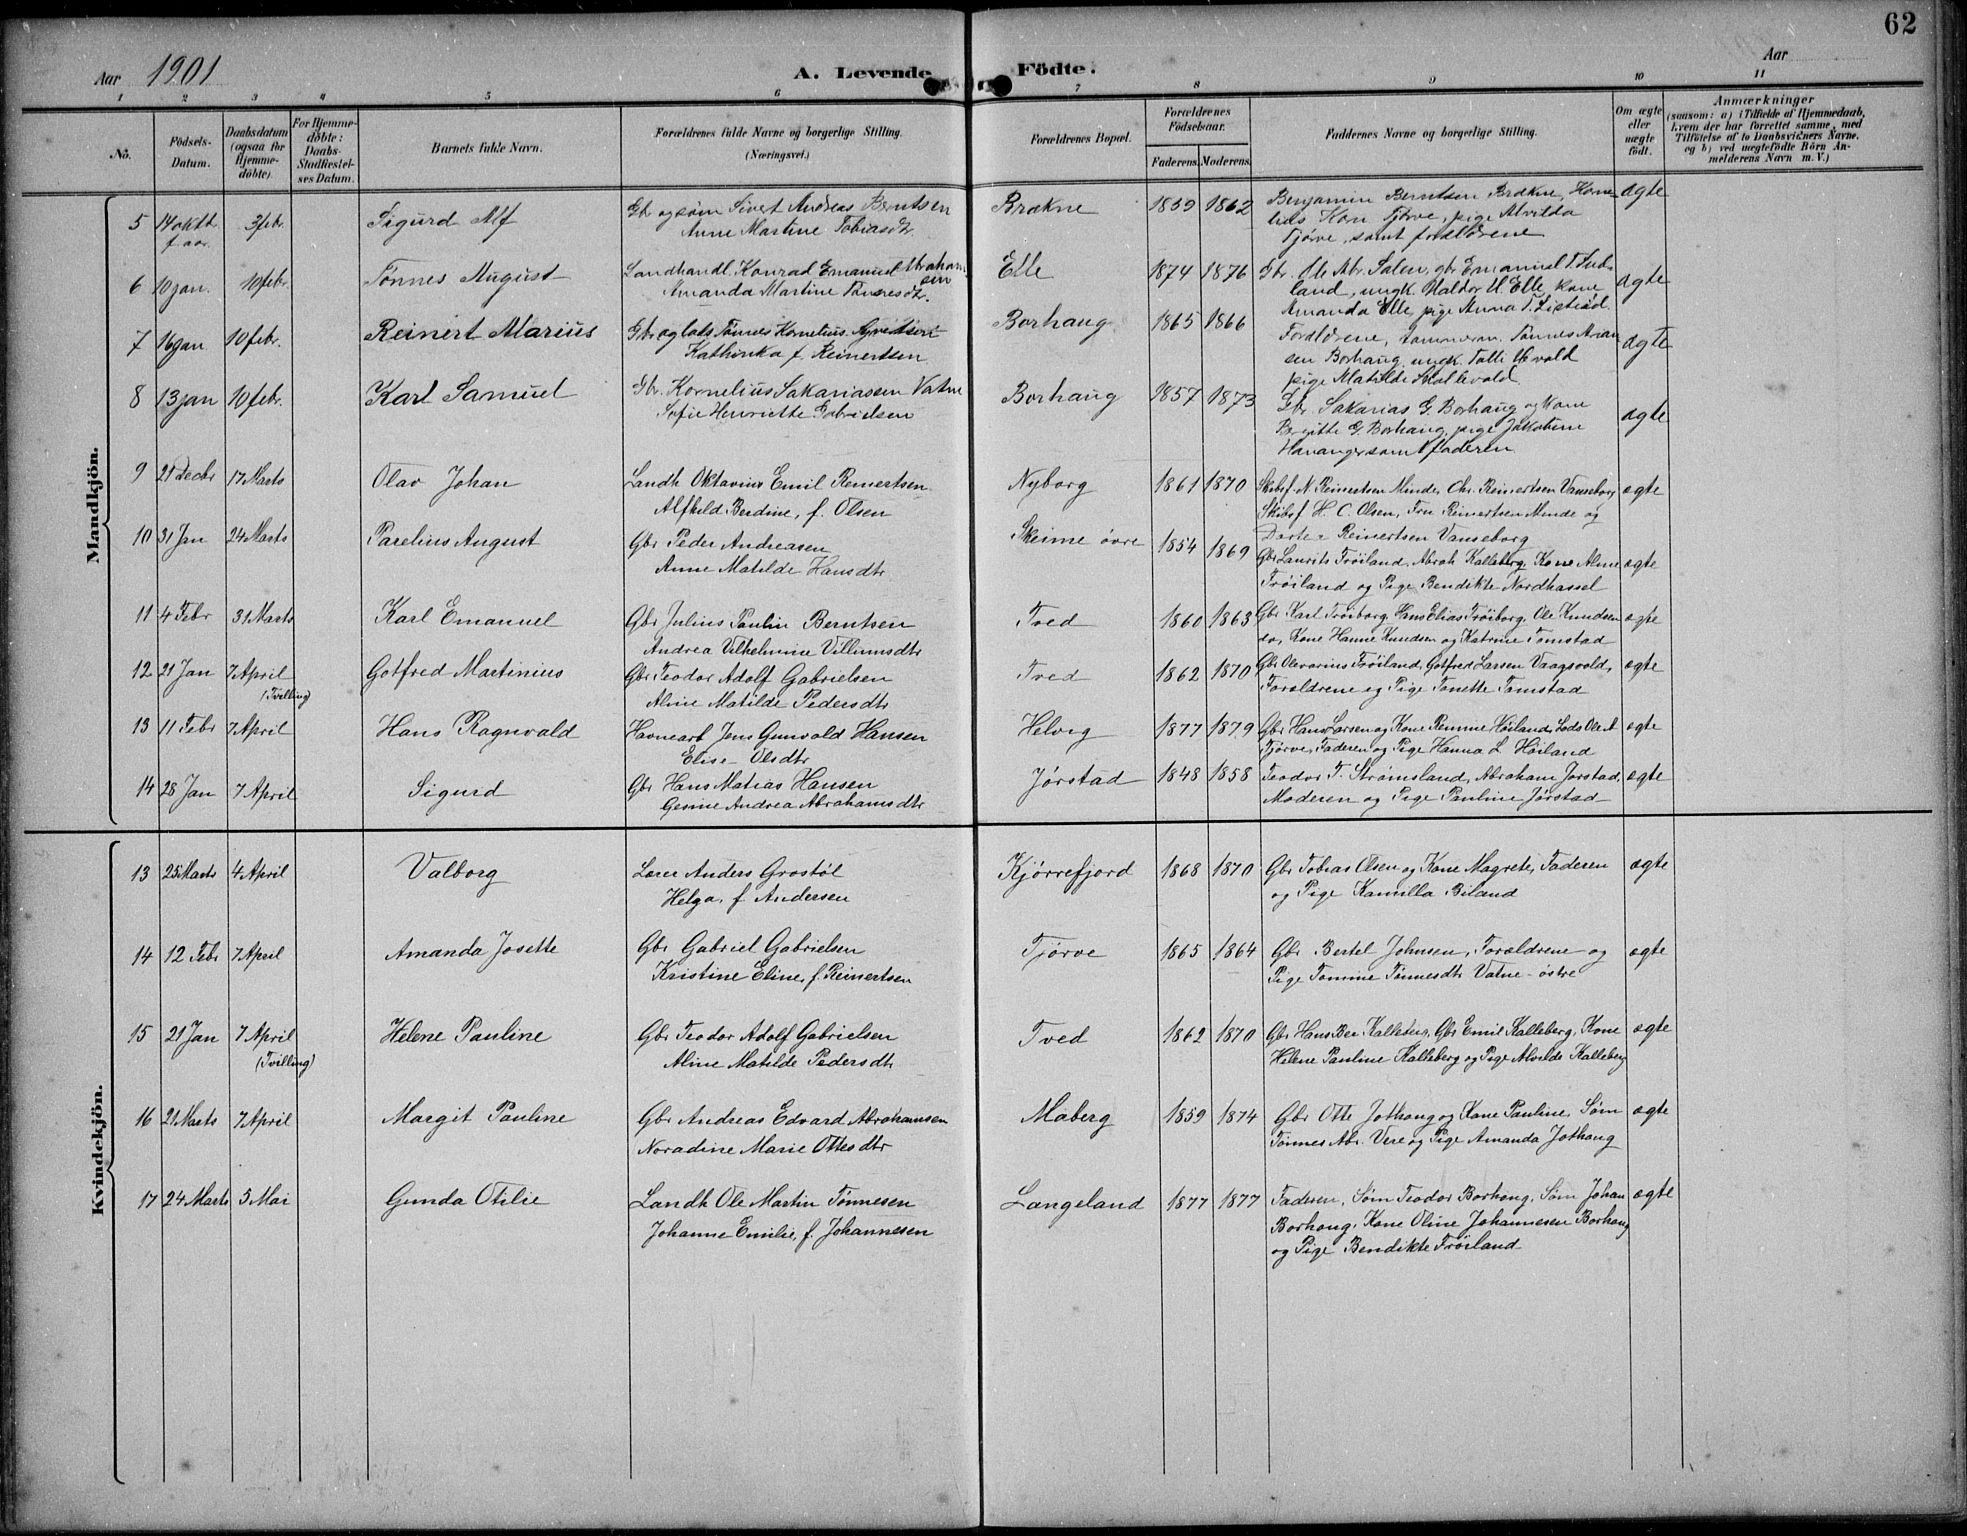 62
Aar 1901 A. Levende Födte. Aar
1 2 3 4 5 6 7 8 9 10 11
No.
Födsels-Datum.
Daabsdatum (ogsaa for Hjemme-döbte).
For Hjemme-döbte: Daabs-Stadfæstel-ses Datum.
Barnets fulde Navn.
Forældrenes fulde Navne og borgerlige Stilling.
(Næringsvei.)
Forældrenes Bopæl.
Forældrenes Födselsaar.
Faderens. Moderens.
Faddernes Navne og borgerlige Stilling.
Om ægte eller uægte födt.
Anmærkninger
(saasom: a) i Tilfælde af Hjemmedaab,
hvem der har forrettet samme, med
Tilföielse af to Daabsvidners Navne,
og b) ved uægtefödte Börn An-
melderens Navn m. V.)
Mandkjön.
5 14 oktb. f aar. 3 febr. Sigurd Alf Gbr og søm Sivert Andreas Berntsen Brækne 1859 1862 Benjamin Berntsen Brækne, Korne-
Anne Martine Tobiasdtr. lius Tjørve, pige Alvilda
Tjørve, samt forældrene ægte
6 10 jan. 10 febr. Tønnes August Landhandl. Konrad Emanuel Abrahamsen Elle 1874 1876 Gbr. Ole Abr. Salen, gbr Emanuel T.
Amanda Martine Tønnesdtr. land, ungk. Haldor Elle, kone
Amanda Elle, pige Anna T. ægte
7 16 jan 10 febr. Reinert Marius Gbr og lots Tønnes Kornelius Borhaug 1865 1866 Forældrene, tømmerm. Tønnes
Kathinka f. Reinertsen sen Borhaug, ungk. Tolli
pige Matilde ægte
8 13 jan 10 febr. Karl Samuel Gbr. Kornelius Sakariassen Vatne Borhaug 1857 1873 Gbr. Sakarias G. Borhaug og kone
Sofie Henriette Gabrielsen Birgitte G. Borhaug, pige Jakobine
Hananger samt faderen ægte
9 21 Decbr 17 Marts Olav Johan Landh Oktavius Emil Reinertsen Nyborg 1861 1870 Skibsf. N. Reinertsen Minde, Chr. Reinertsen Vanseborg
Alfhild Berdine, f. Olsen Skibsf H. C. Olsen, Fru Reinertsen Minde og
Dorte Reinertsen Vanseborg ægte
10 31 Jan 24 Marts Parelius August Gbr Peder Andreasen Skeime øvre 1854 1869 Gbr Laurits Trøiland, Abrah Kalleberg, Kone Aline
Anne Matilde Hansdtr Trøiland og Pige Bendikte Nordhassel ægte
11 4 Febr 31 Marts Karl Emanuel Gbr Julius Paulin Berntsen Tved 1860 1863 Gbr Karl Trøiborg, Hans Elias Trøiborg, Ole Knudsen
Andrea Vilhelmine Villumsdtr do, Kone Hanne Knudsen og Katrine Tomstad ægte
12 21 Jan 7 April (Tvilling) Gotfred Martinius Gbr Teodor Adolf Gabrielsen Tved 1862 1870 Gbr Olevarius Trøiland, Gotfred Larsen Vaagsvold,
Aline Matilde Pedersdtr Forældrene og Pige Tonette Tomstad ægte
13 11 Febr 7 April Hans Ragnvald Havnearb Jens Gunvald Hansen Helvig 1877 1879 Gbr Hans Larsen og Kone Remine Høiland, Lods Ole A
Elise Olsdtr Tjørve, Faderen og Pige Hanna L Høiland ægte
14 28 Jan 7 April Sigurd Gbr Hans Matias Hansen Jørstad 1848 1858 Teodor T. Strømsland, Abraham Jørstad,
Gesine Andrea Abrahamsdtr Moderen og Pige Pauline Jørstad ægte
Kvindekjön.
13 25 Marts 4 April Valborg Lærer Anders Grostøl Kjørrefjord 1868 1870 Gbr Tobias Olsen og Kone Magrete, Faderen
Helga, f Andersen og Pige Kamilla Biland ægte
14 12 Febr 7 April Amanda Josette Gbr Gabriel Gabrielsen Tjørve 1865 1864 Gbr Bertel Johnsen, Forældrene og
Kristine Eline, f. Reinertsen Pige Tomine Tønnesdtr Vatne østre ægte
15 21 Jan 7 April (Tvilling) Helene Pauline Gbr Teodor Adolf Gabrielsen Tved 1862 1870 Gbr Hans Ber Kalleberg, Gbr Emil Kalleberg, Kone
Aline Matilde Pedersdtr Helene Pauline Kalleberg og Pige Alvilde Kalleberg ægte
16 21 Marts 7 April Margit Pauline Gbr Andreas Edvard Abrahamsen Maberg 1859 1874 Gbr Otte Jølhaug og Kone Pauline, Søm
Noradine Marie Ottesdtr Tønnes Abr. Vere og Pige Amanda Jølhaug ægte
17 24 Marts 5 Mai Gunda Otilie Landh Ole Martin Tønnesen Langeland 1877 1877 Faderen, Søm Teodor Borhaug, Søm Johan
Johanne Emilie, f. Johannesen Borhaug, Kone Oline Johannesen Borhaug
og Pige Bendikte Trøiland ægte